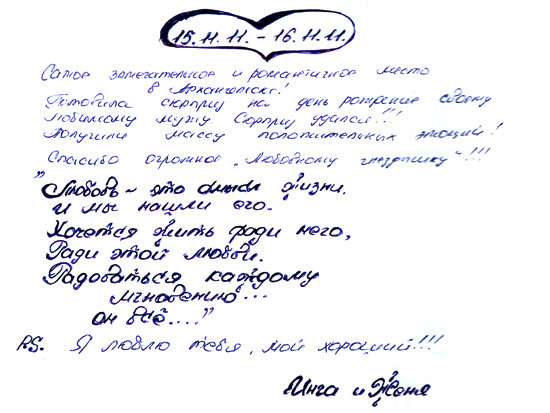 15.11.11. - 16.11.11.
Самое замечательное и романтичное место
в Архангельске!
Готовила сюрприз на день рождение своему
любимому мужу. Сюрприз удался!!!
Получили массу положительных эмоций!
Спасибо огромное „Любовному гнездышку"!!!
"Любовь - это смысл жизни.
И мы нашли его.
Хочется жить ради него,
Ради этой любви.
Радоваться каждому
мгновению...
он всё...."
P.S. Я люблю тебя, мой хороший!!!
Инга и Женя